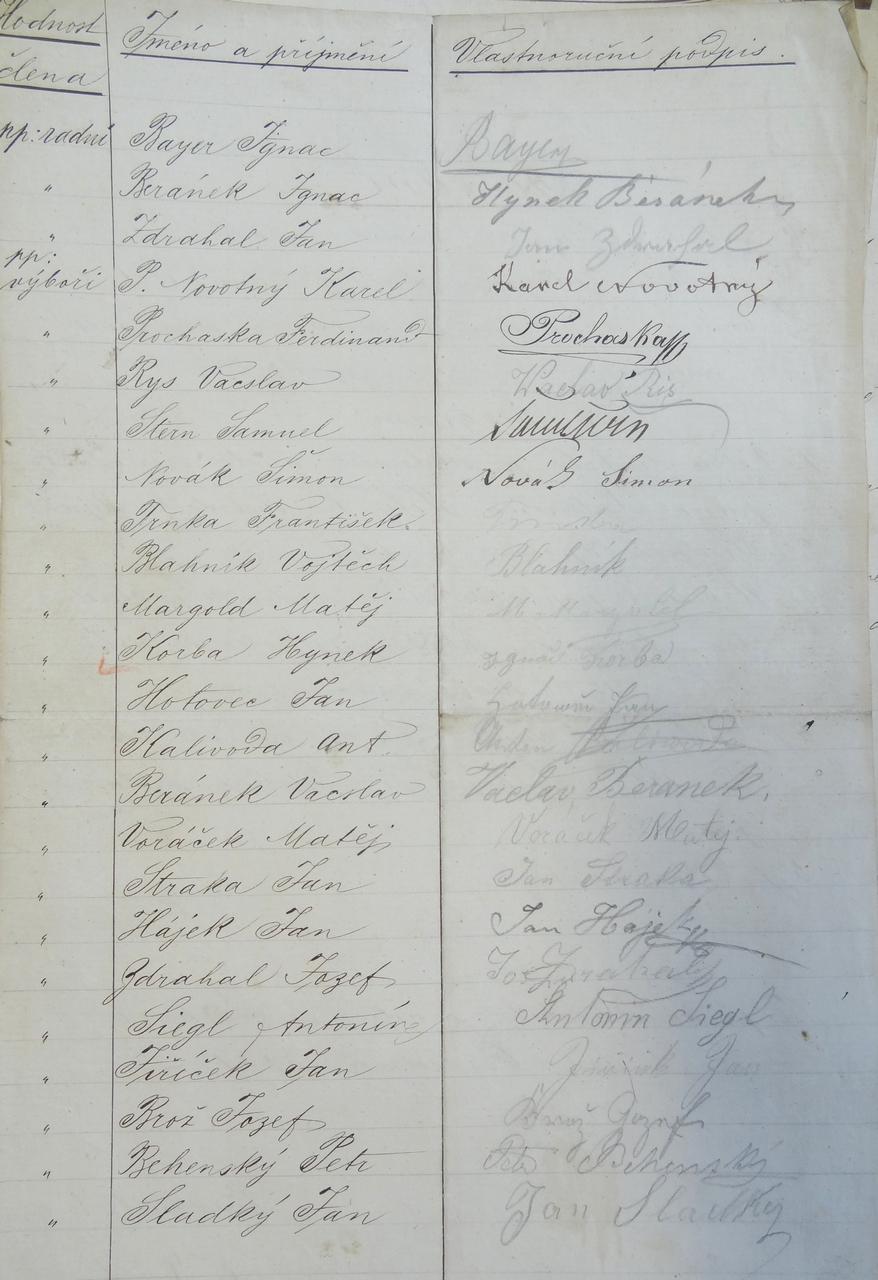 Hodnost člena Jméno a příjmění Vlastnoruční podpis.
pp: radní Bayer Ignac Bayer
" Beránek Ignac Hynek Beránek
" Zdrahal Jan Jan Zdrahal
pp: výboři P. Novotný Karel Karel Novotný
" Prochaska Ferdinand Prochaska
" Rys Vacslav Waclav Ris
" Stern Samuel Sam Stern
" Novák Šimon Novák Šimon
" Trnka František.
" Blahník Vojtěch Blahník
" Margold Matěj M. Margold
" Korba Hynek Ignac Korba
" Hotovec Jan Hotowec Jan
" Kalivoda Ant. Kaliwoda
" Beránek Vacslav Vaclav Beranek.
" Voráček Matěj Voráček Matej.
" Straka Jan Jan Straka
" Hájek Jan Jan Hájek
" Zdrahal Jozef Jos Zdrahal
" Siegl Antonín Antonin Siegl
" Jiříček Jan Jiříček Jan
" Brož Jozef Brož Jozef
" Behenský Petr Petr Behenský
" Sladký Jan Jan Sladký